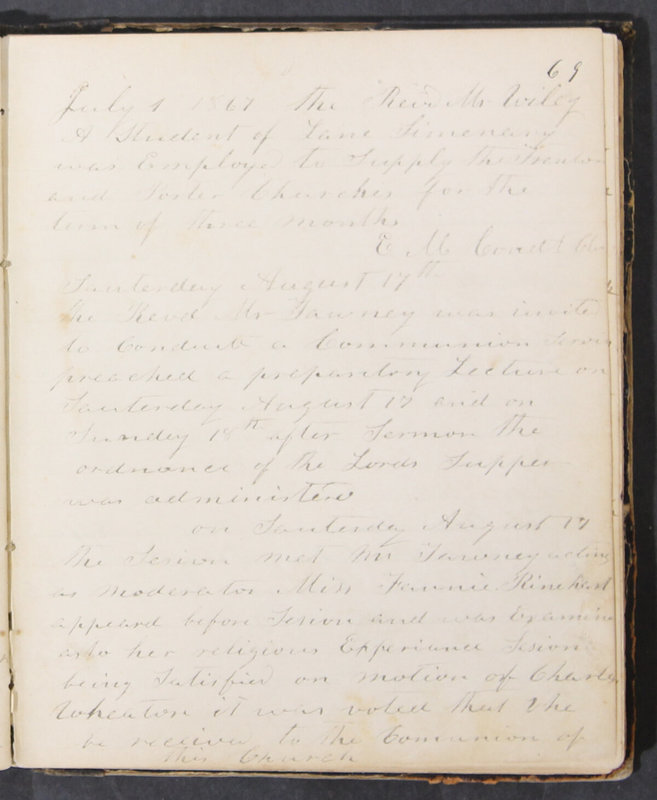 69
July 1 1867 the Revd Mr Wiley
A Student of Lane Simenary
was Employe to Supply the Trenton
and Foster Churches for the
term of three months
E M Condit
Sauterday August 17th
the Revd Mr Tawney was invite
to Conduct a Communion Servis
preached a preparitory Lecture on
Sauterday August 17 and on
Sundey 18th after Sermon the
ordnance of the Lords Supper
was administerd
on Sauterday August 17
the Sesion met Mr Tawney acting
as moderator Miss Fannie Rinehart
appeard before Sesion and was Examine
as to her religious Experiance Sesion
being Satisfied on motion of Charles
Wheaton it was voted that She
be received to the Communion of
this Church